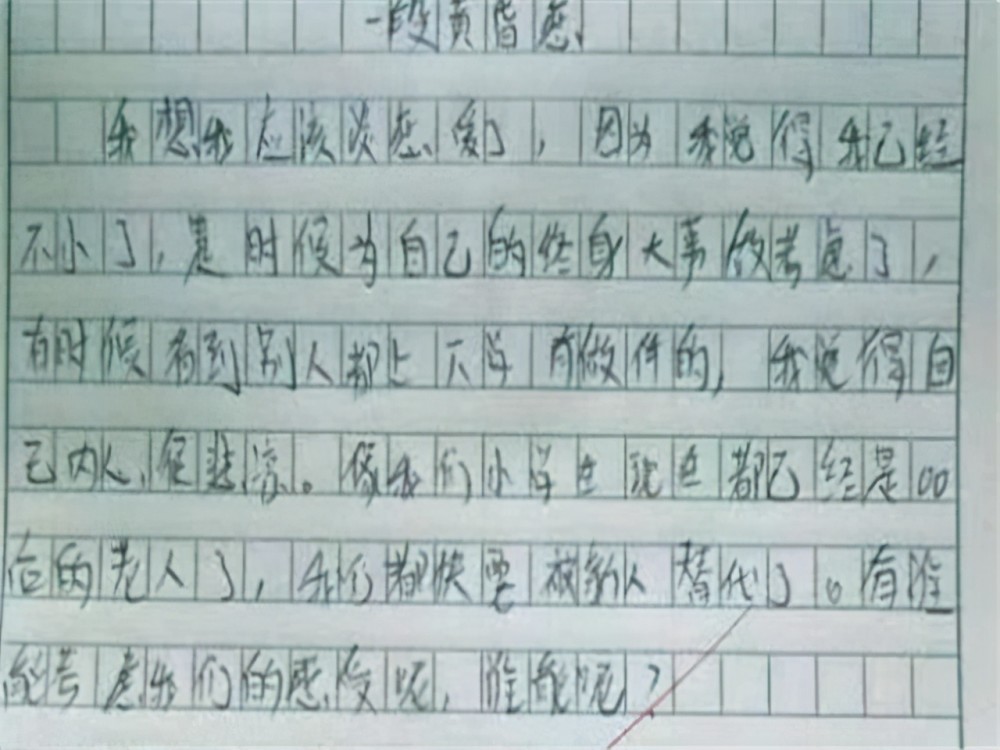 一段黄昏恋
我想我应该谈恋爱了，因为我觉得我己经
不小了，是时候为自己的终身大事做考虑了，
有时候看到别人都上下学有做伴的，我觉得自
己内心很悲凉。像我们小学生现在都己经是00
后的老人了，我们都快要被新人替代了。有谁
能考虑我们的感受呢，谁能呢？